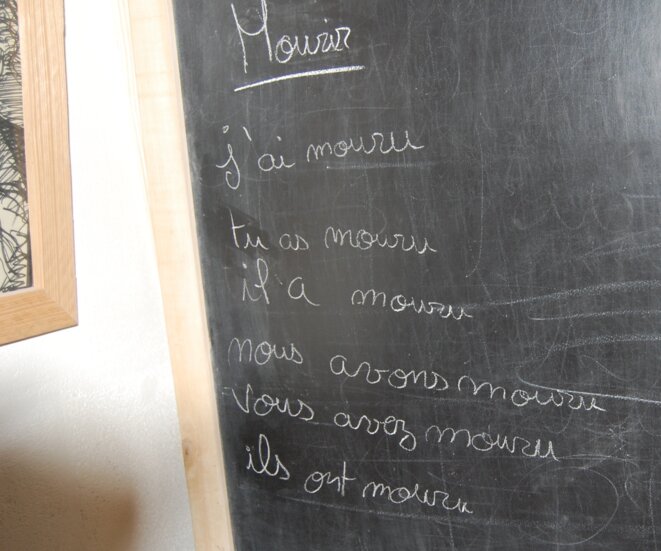 Mourir
j'ai mouru
tu as mouru
il a mouru
nous avons mouru
vous avez mouru
ils ont mouru